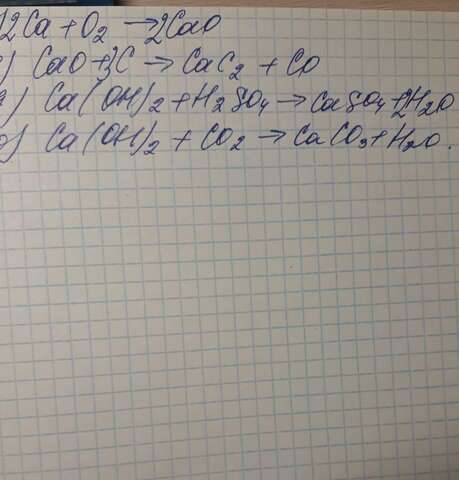 ) 2Ca + O₂ → 2CaO
) CaO + 3C → CaC₂ + CO
) Ca(OH)₂ + H₂SO₄ → CaSO₄ + 2H₂O
) Ca(OH)₂ + CO₂ → CaCO₃ + H₂O.